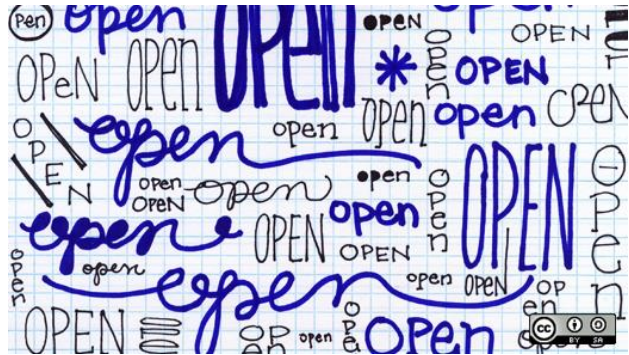 Pen
open
OPEN
OPEN
OPEN
OPeN
open
open
OPEN
OPEN
open
OPEN
open
open
open
OPEN
open
open
OPEN
open
open
open
OPEN
open
OPEN
open
OPEN
OPEN
open
open
open
open
open
OPEN
open
OPEN
OPEN
open
open
open
open
cc
BY SA